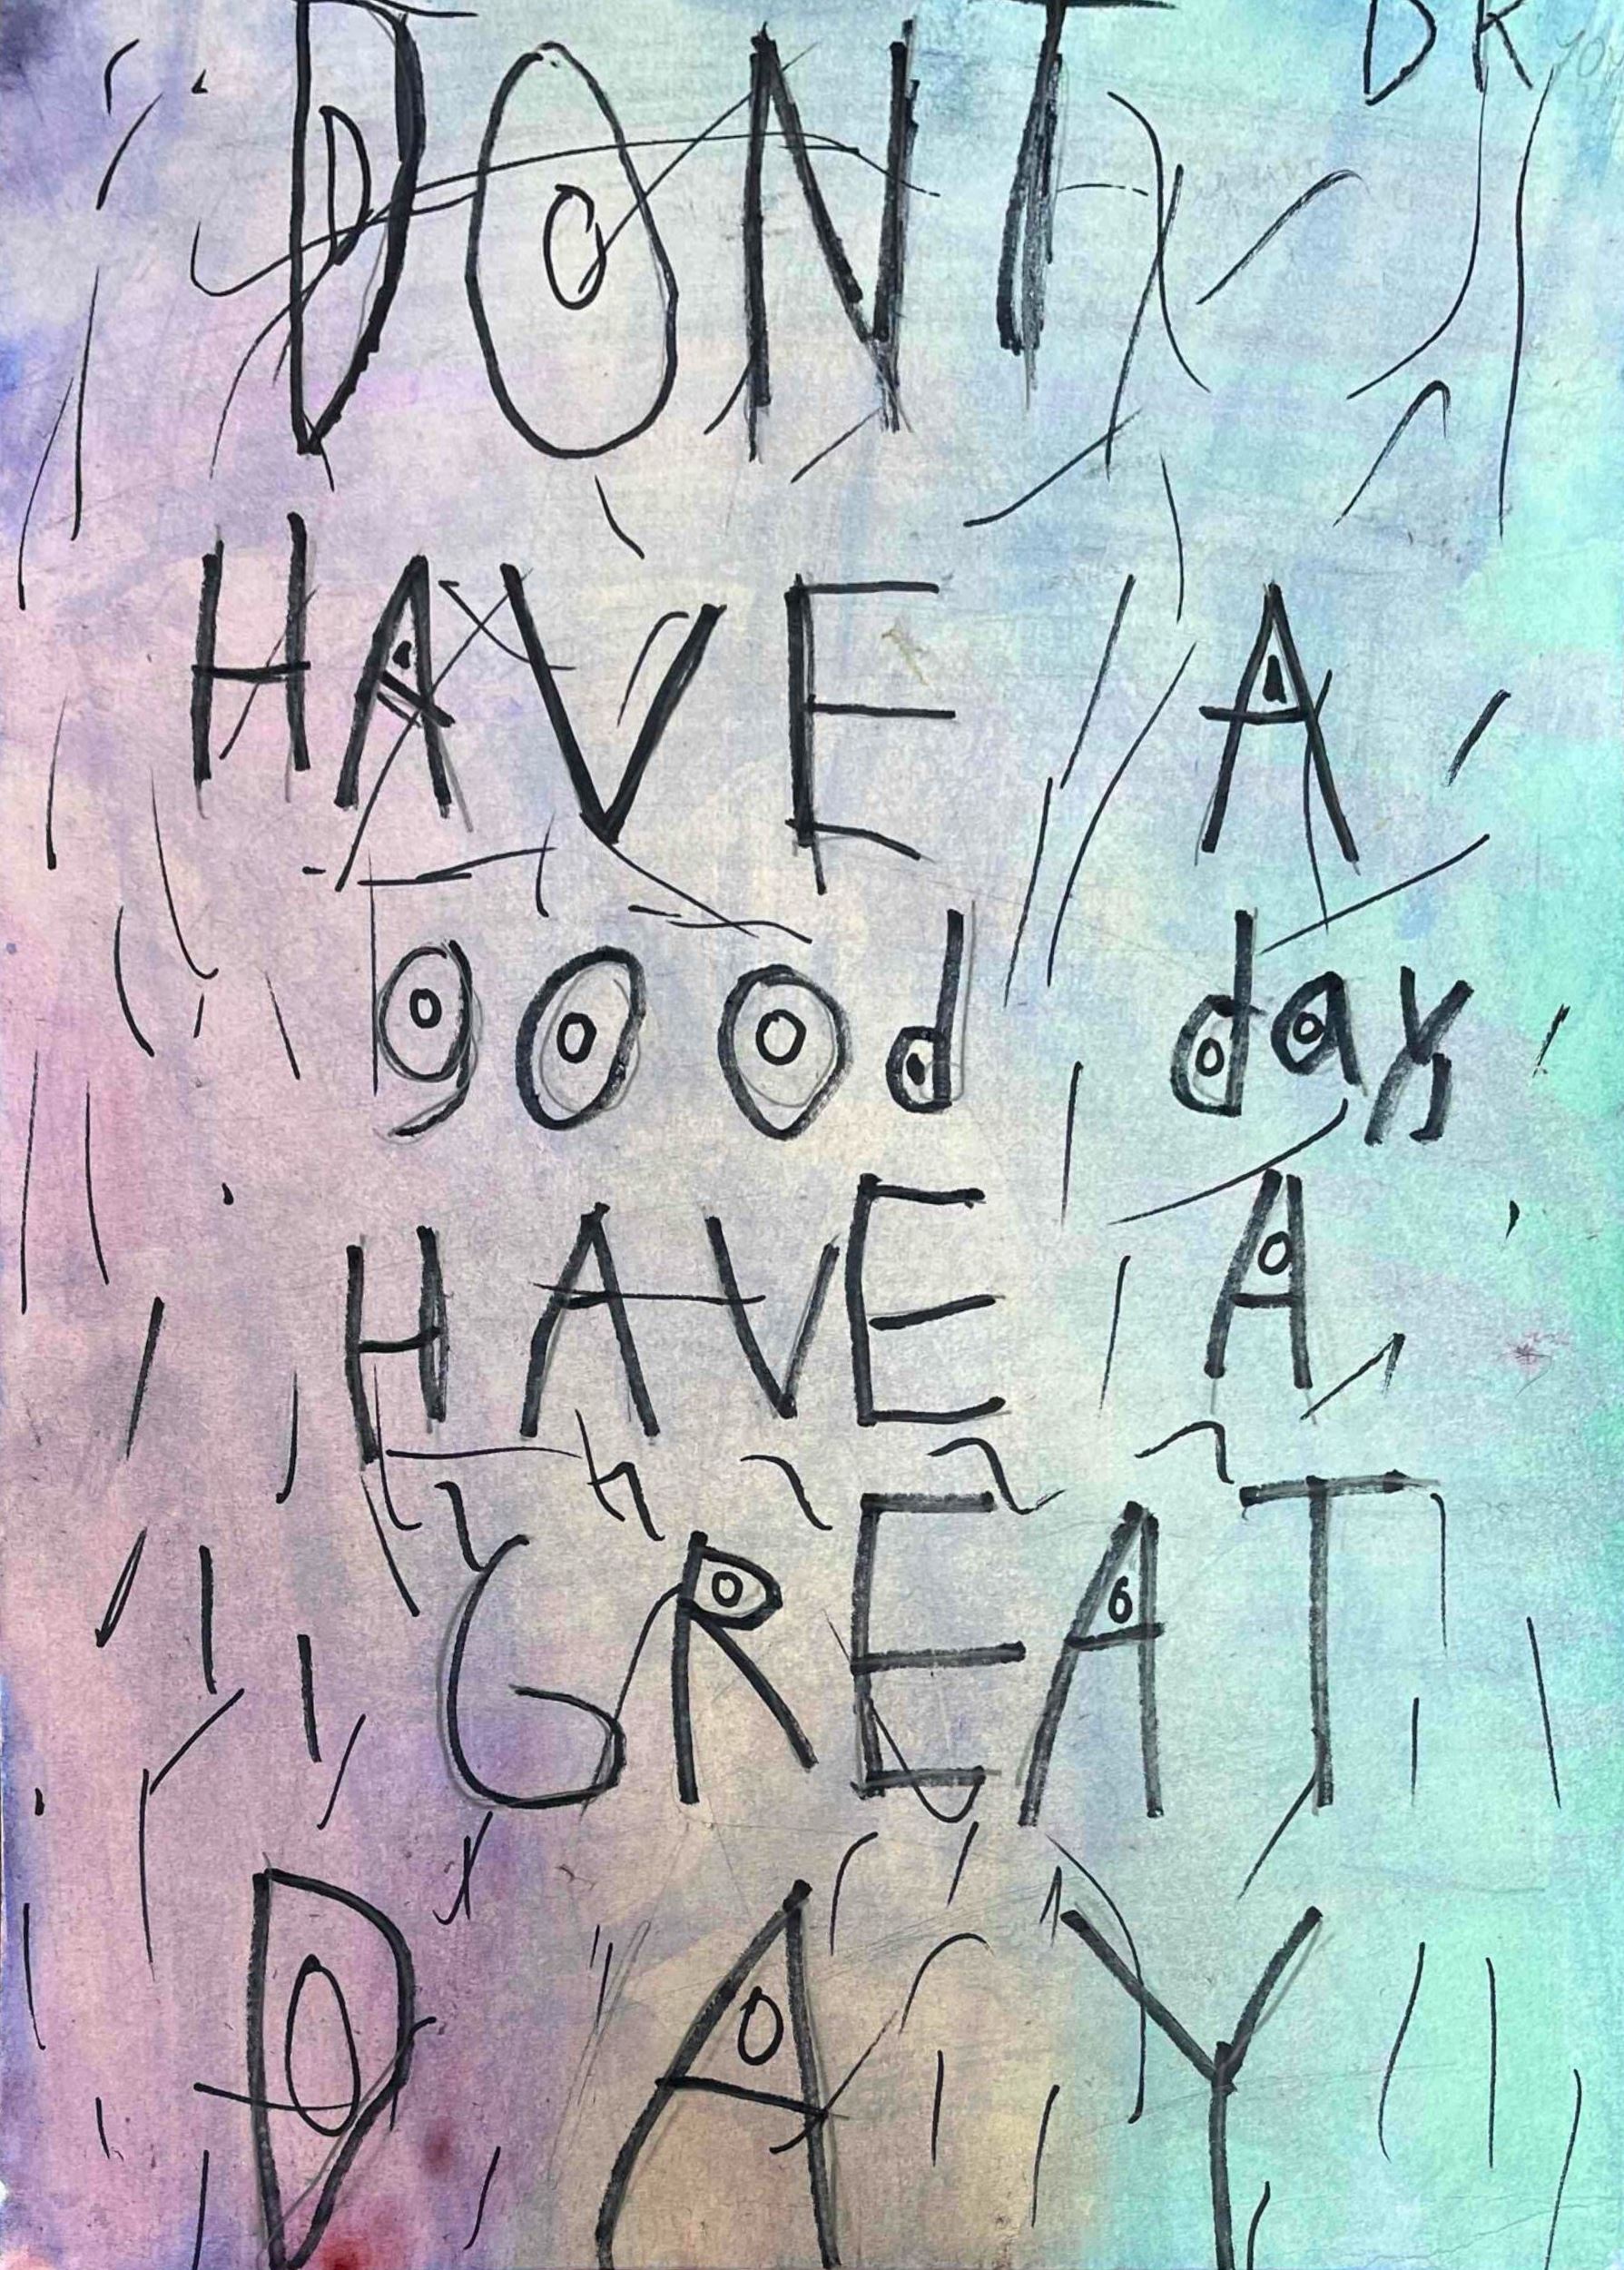 DK
DONT
HAVE A
good day
HAVE A
GREAT
DAY